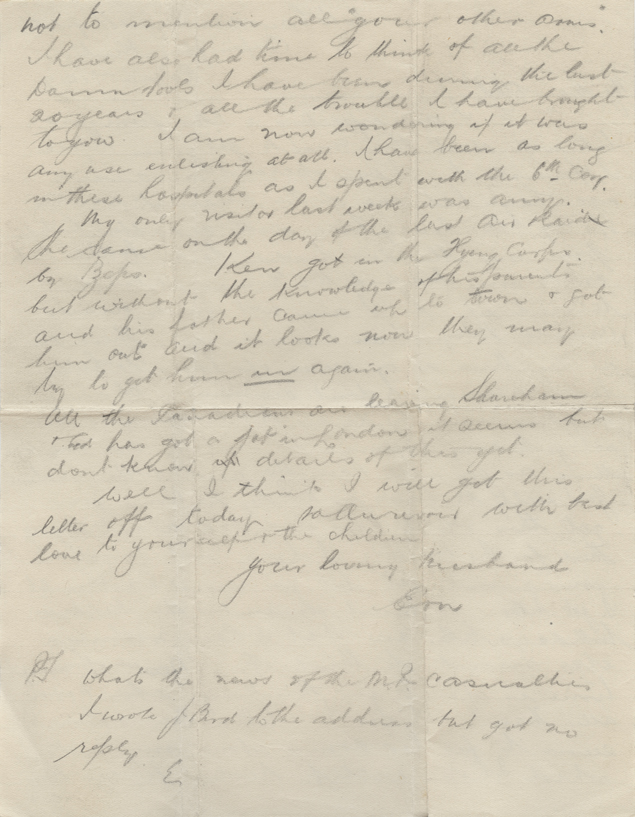 not to mention all your other Dons".
I have also had time to think of all the
Damn fools I have been during the last
20 years & all the trouble I have brought
to you. I am now wondering if it was
any use enlisting at all. I have been as long
in these hospitals as I spent with the 6th Coy.
My only visitor last week was Amy.
She came on the day of the last Air Raid
by Zeps. Ken got in the Flying Corps.
but without the knowledge of his parents
and his father came up to town & got
him out and it looks now they may
try to get him in again.
All the Canadians are leaving Shoreham
& has got a job in London it seems but
dont know details of this yet.
Well I think I will get this
letter off today so Aurevoir with best
love to yourself & the children
Your loving husband
Ern
PS Whats the news of the casualties
I wrote J Bird to the address but got no
reply.
E